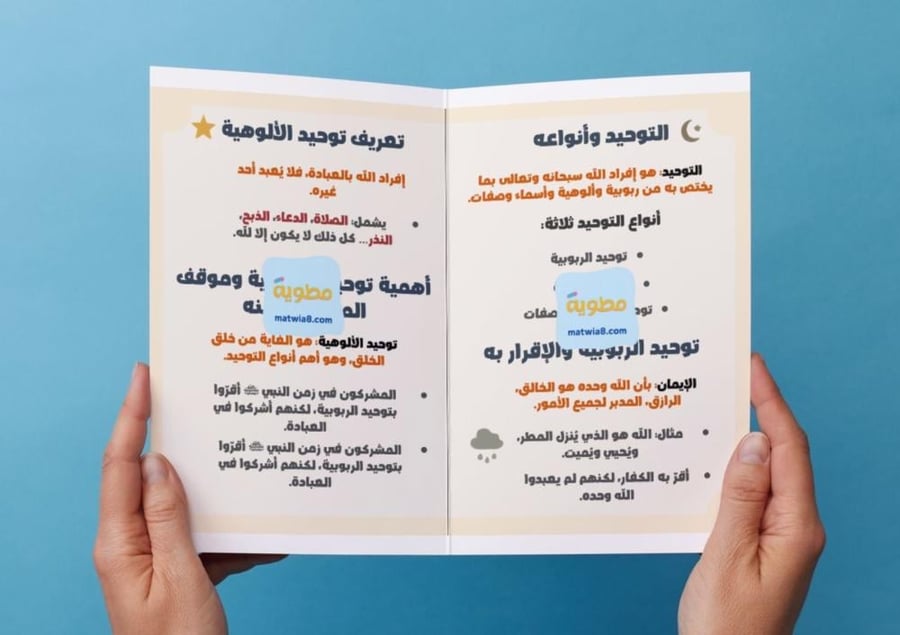 التوحيد وأنواعه
التوحيد: هو إفراد الله سبحانه وتعالى بما
يختص به من ربوبية وألوهية وأسماء وصفات.
أنواع التوحيد ثلاثة:
• توحيد الربوبية
مطوية
matwia8.com
توحيد الربوبية والإقرار به
الإيمان: بأن الله وحده هو الخالق،
الرازق، المدبر لجميع الأمور.
• مثال: الله هو الذي يُنزل المطر،
ويُحيي ويُميت.
• أقرّ به الكفار، لكنهم لم يعبدوا
الله وحده.
تعريف توحيد الألوهية
إفراد الله بالعبادة، فلا يُعبد أحد
غيره.
• يشمل: الصلاة، الدعاء، الذبح،
النذر... كل ذلك لا يكون إلا لله.
أهمية وموقف
مطوية
matwia8.com
توحيد الألوهية: هو الغاية من خلق
الخلق، وهو أهم أنواع التوحيد.
• المشركون في زمن النبي ﷺ أقرّوا
بتوحيد الربوبية، لكنهم أشركوا في
العبادة.
• المشركون في زمن النبي ﷺ أقرّوا
بتوحيد الربوبية، لكنهم أشركوا في
العبادة.